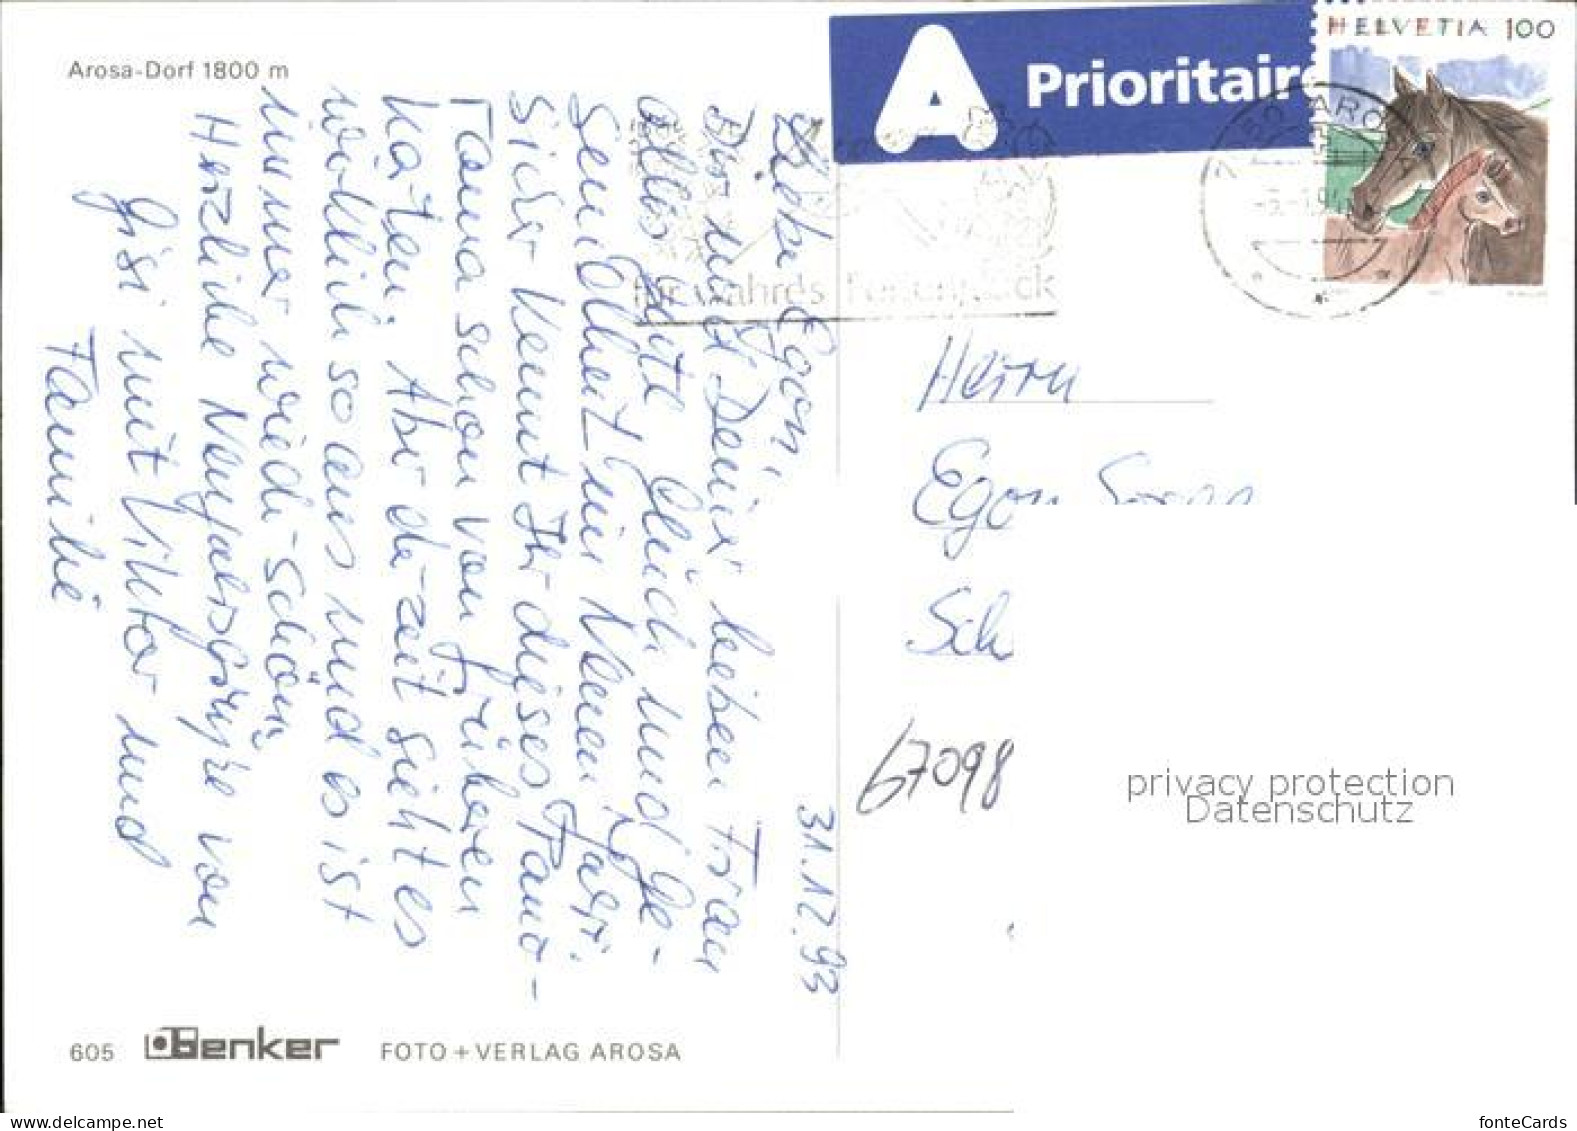 Arosa-Dorf 1800 m
A Prioritaire
HELVETIA 100
für wahres Ferienglück
31.12.93
Lieber Egon,
Dir und Deiner lieben Frau
alles Gute Glück und Ge-
sundheit im Neuen Jahr.
Sicher kennt Ihr dieses Pano-
rama schon von früheren
Karten. Aber derzeit sieht es
wirklich so aus und es ist
immer wieder schön.
Herzliche Neujahrsgrüße von
Gisi mit Viktor und
Familie
Herrn
Egon
Sch
67098
privacy protection
Datenschutz
605 Benker FOTO + VERLAG AROSA
www.delcampe.net
fonteCards